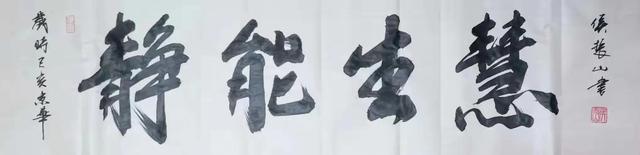 歲時己亥京華
静能生慧
侯發山書